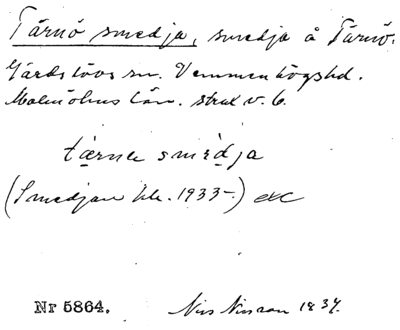 Tärnö smedja, smedja å Tärnö.
Gärdslövs sn. Vemmenhögshd.
Malmöhus län. strax v. 6.
tärne smidja
(Smedjan 1933-) etc
Nr 5864. Nils Nilsson 1934.